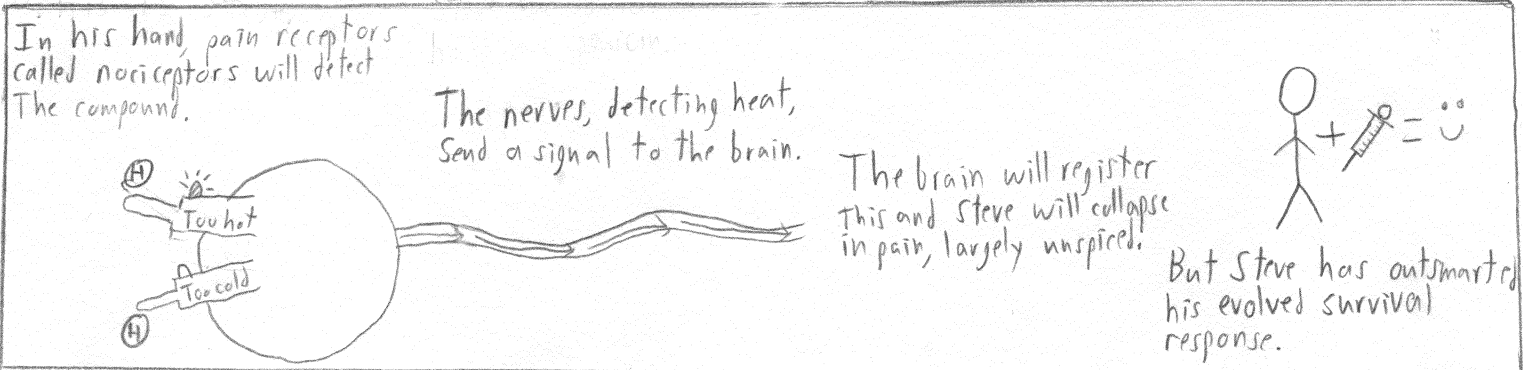 In his hand, pain receptors
called nociceptors will detect
The compound.
The nerves, detecting heat,
Send a signal to the brain.
H
Too hot
Too cold
H
The brain will register
This and Steve will collapse
in pain, largely unspiced.
+ = :)
But Steve has outsmarted
his evolved survival
response.